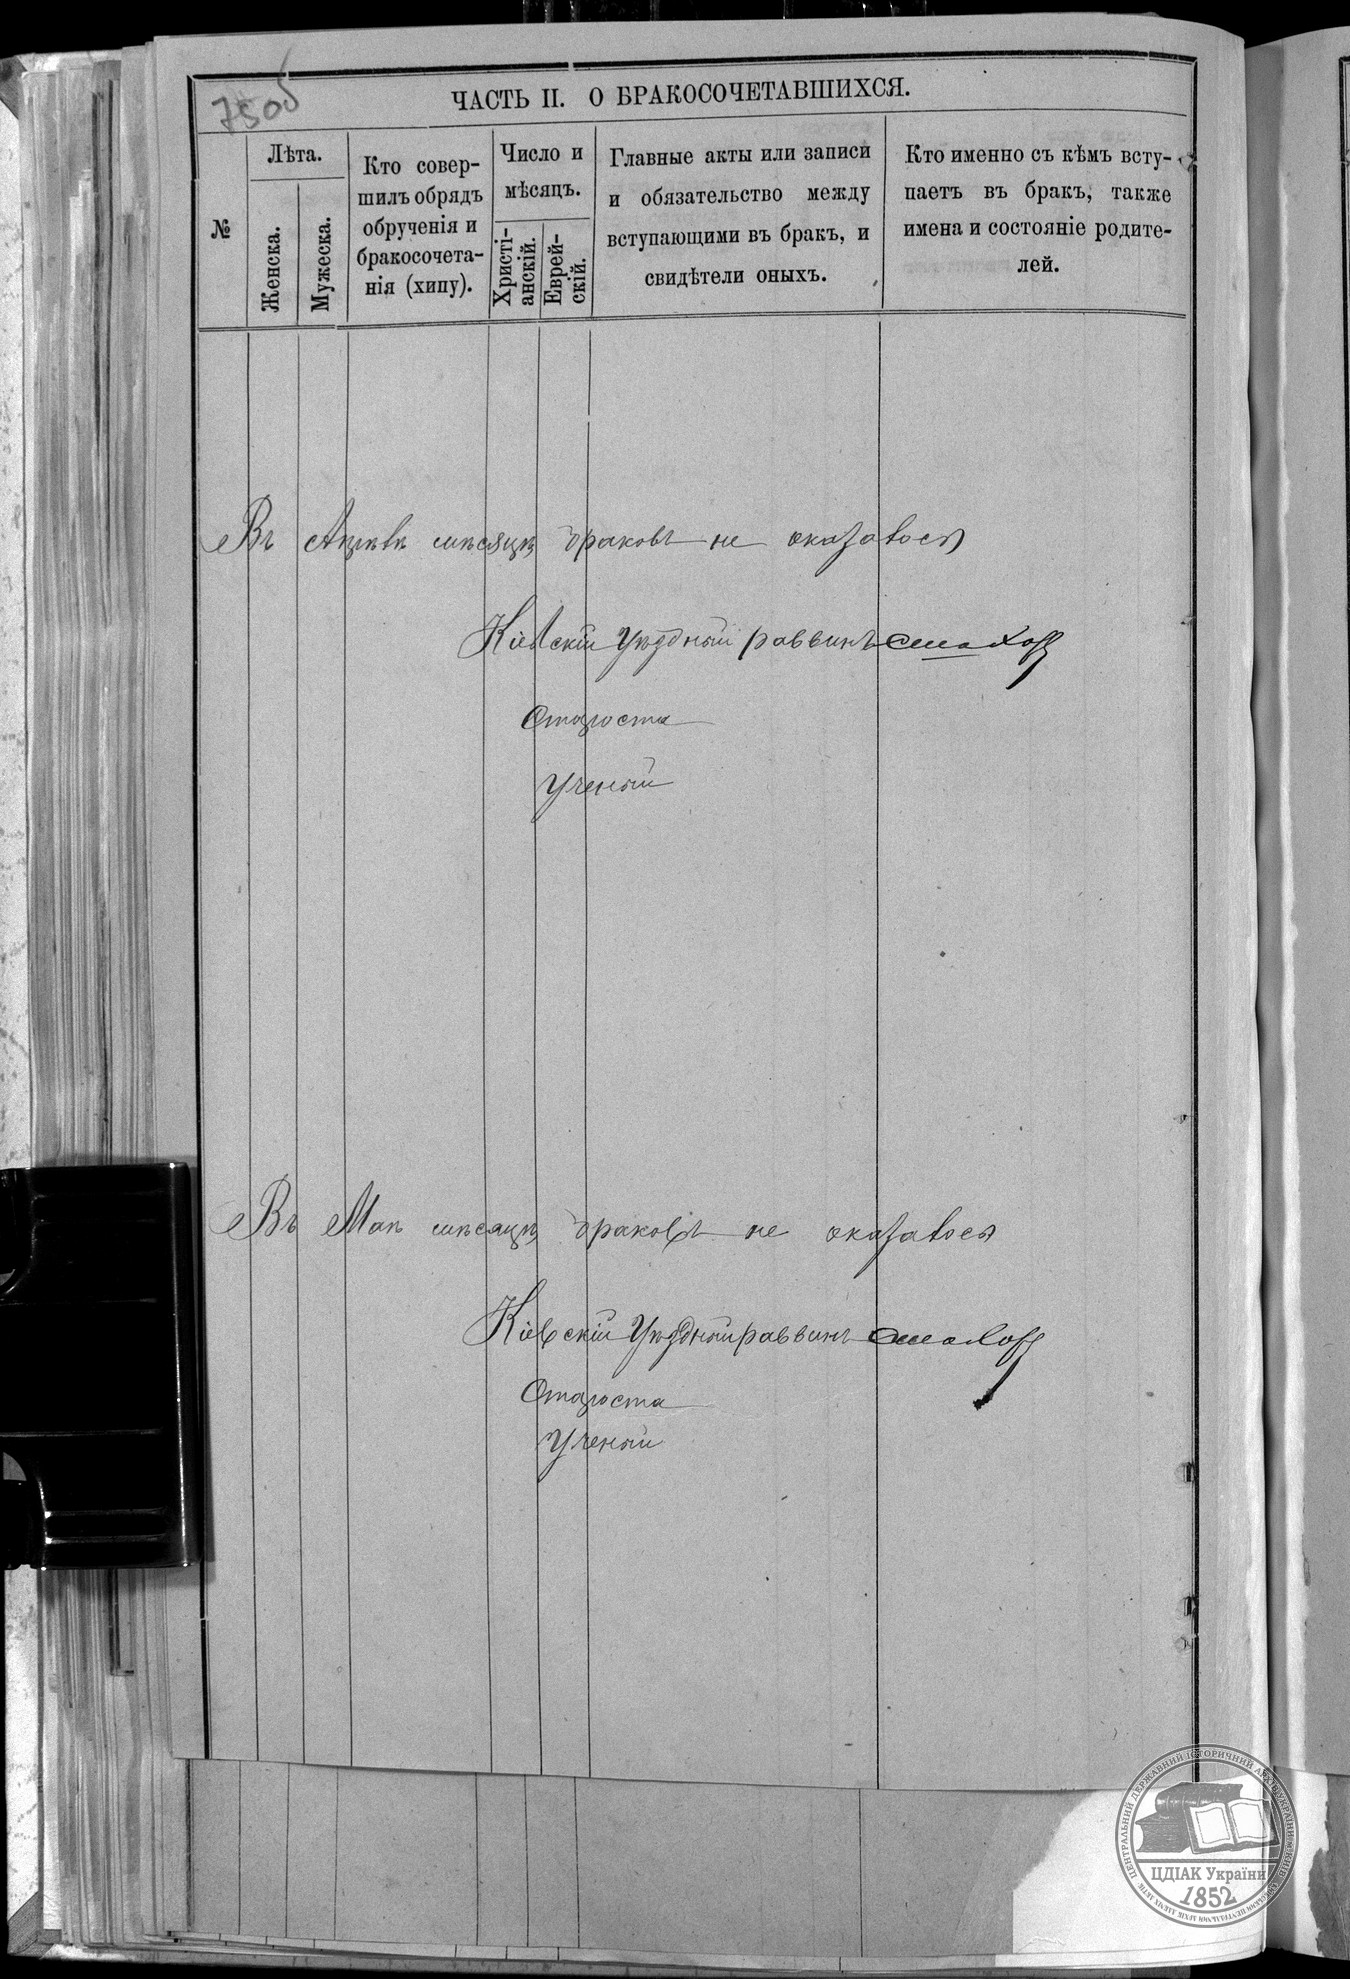 7505
ЧАСТЬ II. О БРАКОСОЧЕТАВШИХСЯ.
№
Лѣта.
Женска.
Мужеска.
Кто совер-
шилъ обрядъ
обрученія и
бракосочета-
нія (хипу).
Число и
мѣсяцъ.
Христі-
анскій.
Еврей-
скій.
Главные акты или записи
и обязательство между
вступающими въ бракъ, и
свидѣтели оныхъ.
Кто именно съ кѣмъ всту-
паетъ въ бракъ, также
имена и состояніе родите-
лей.
Въ мѣсяцѣ браковъ не оказалось
Кіевскій Уѣздный раввинъ
Староста
Ученый
Въ Маѣ мѣсяцѣ браковъ не оказалось
Кіевскій Уѣздный раввинъ
Староста
Ученый
ЦЕНТРАЛЬНИЙ ДЕРЖАВНИЙ ІСТОРИЧНИЙ АРХІВ УКРАЇНИ
ЦДІАК України
1852